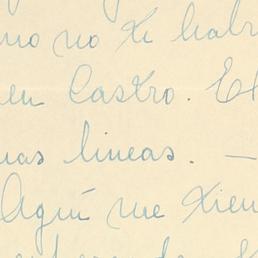 no no te habr
en Castro. El
nas lineas. —
Aquí me tien